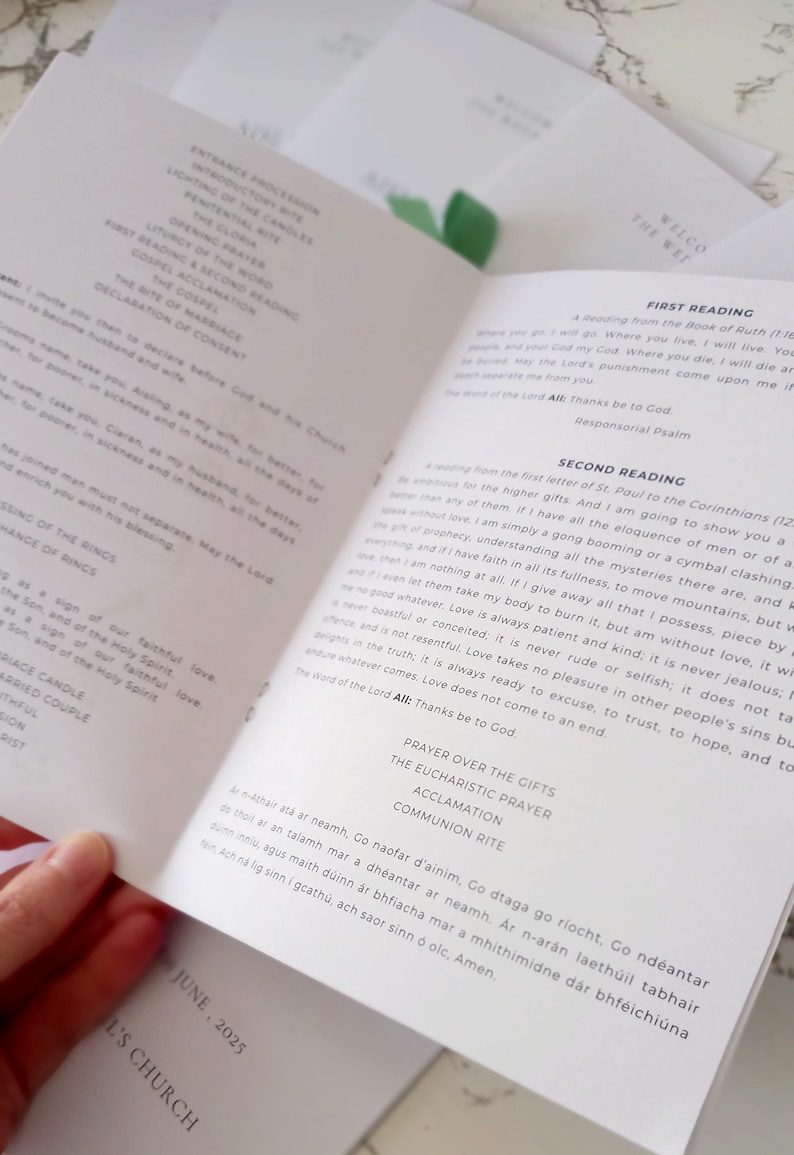 WELCO
THE WE
ENTRANCE PROCESSION
INTRODUCTORY RITE
LIGHTING OF THE CANDLES
PENITENTIAL RITE
THE GLORIA
OPENING PRAYER
LITURGY OF THE WORD
FIRST READING & SECOND READING
GOSPEL ACCLAMATION
THE GOSPEL
THE RITE OF MARRIAGE
DECLARATION OF CONSENT
I invite you then to declare before God and his Church
consent to become husband and wife.
Grooms name, take you, Aisling, as my wife, for better, for
for poorer, in sickness and in health, all the days of
name, take you, Ciaran, as my husband, for better,
for poorer, in sickness and in health, all the days
has joined man must not separate. May the Lord
and enrich you with his blessing.
SSING OF THE RINGS
HANGE OF RINGS
as a sign of our faithful love.
the Son, and of the Holy Spirit.
as a sign of our faithful love.
Son, and of the Holy Spirit
RIAGE CANDLE
ARRIED COUPLE
ITHFUL
SION
RIST
FIRST READING
A Reading from the Book of Ruth (1:16
Where you go, I will go. Where you live, I will live. You
people, and your God my God. Where you die, I will die an
be buried. May the Lord's punishment come upon me if
death separate me from you.
The Word of the Lord All: Thanks be to God.
Responsorial Psalm
SECOND READING
A reading from the first letter of St. Paul to the Corinthians (12
Be ambitious for the higher gifts. And I am going to show you a
better than any of them. If I have all the eloquence of men or of a
speak without love, I am simply a gong booming or a cymbal clashing.
the gift of prophecy, understanding all the mysteries there are, and k
everything, and if I have faith in all its fullness, to move mountains, but w
love, then I am nothing at all. If I give away all that I possess, piece by
and if I even let them take my body to burn it, but am without love, it wi
me no good whatever. Love is always patient and kind; it is never jealous;
is never boastful or conceited; it is never rude or selfish; it does not ta
offence, and is not resentful. Love takes no pleasure in other people's sins bu
delights in the truth; it is always ready to excuse, to trust, to hope, and to
endure whatever comes. Love does not come to an end.
The Word of the Lord All: Thanks be to God.
PRAYER OVER THE GIFTS
THE EUCHARISTIC PRAYER
ACCLAMATION
COMMUNION RITE
Ár n-Athair atá ar neamh, Go naofar d'ainim, Go dtaga go ríocht, Go ndéantar
do thoil ar an talamh mar a dhéantar ar neamh. Ár n-arán laethúil tabhair
dúinn inniu, agus maith dúinn ár bhfiacha mar a mhithimidne dár bhféichiúna
féin, Ach ná lig sinn í gcathú, ach saor sinn ó olc, Amen.
JUNE , 2025
L'S CHURCH